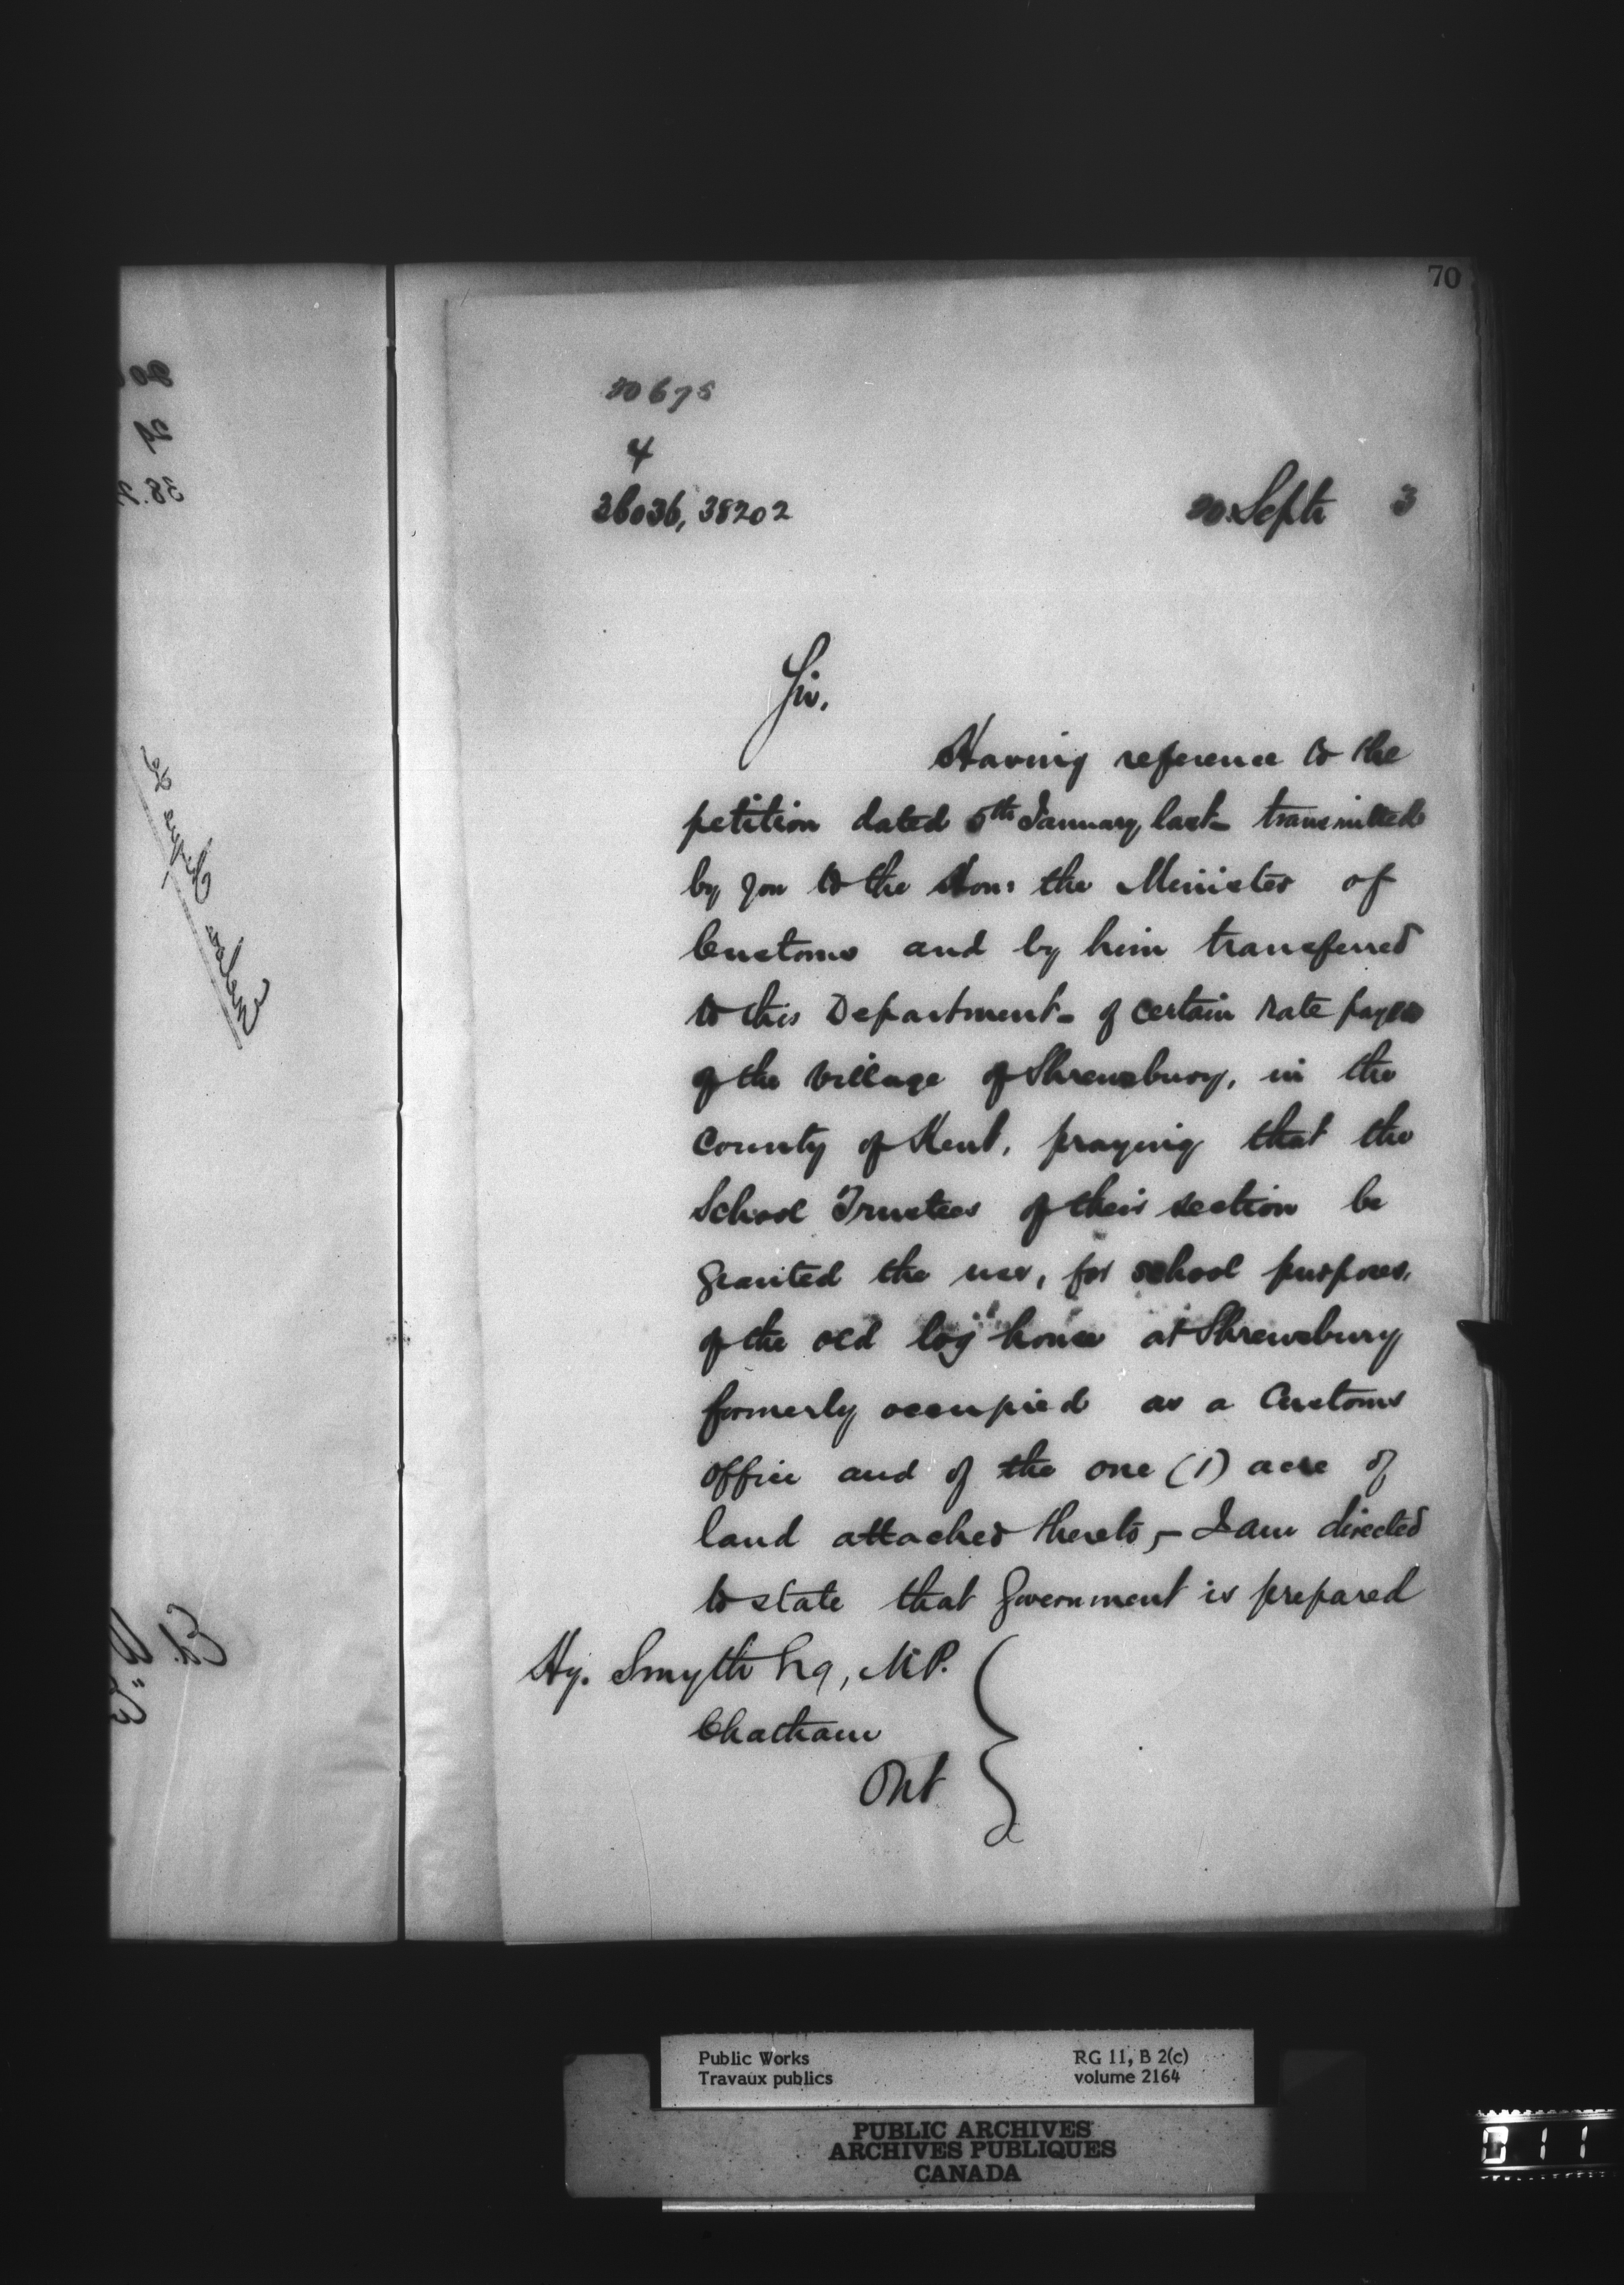 70
20675
4
36036, 38202
20 Septr 3
Sir,
Having reference to the
petition dated 5th January last - transmitted
by you to the Hon: the Minister of
Customs and by him transferred
to this Department - of certain rate payers
of the Village of Shrewsbury, in the
County of Kent, praying that the
School Trustees of their section be
granted the use, for school purposes,
of the old log house at Shrewsbury
formerly occupied as a Customs
Office and of the one (1) acre of
land attached thereto, - I am directed
to state that Government is prepared
Hy. Smyth Esq, M.P.
Chatham
Ont
Public Works
Travaux publics
RG 11, B 2(c)
volume 2164
PUBLIC ARCHIVES
ARCHIVES PUBLIQUES
CANADA